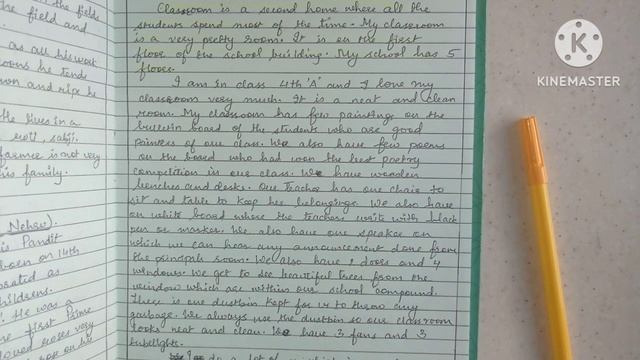 the fields
field and
as all his work
he tends
own and ripe he
the lives in a
roti, sabji.
farmer is not very
his family.
Nehru).
is Pandit
born on 14th
as
childrens.
. He was a
first Prime
loved roses very
rose on his
Classroom is a second home where all the
students spend most of the time. My classroom
is a very pretty room. It is on the first
floor of the school building. My school has 5
floors.
I am in class 4th 'A' and I love my
classroom very much. It is a neat and clean
room. My classroom has few paintings on the
bulletin board of the students who are good
painters of our class. We also have few poems
on the board who had won the best poetry
competition in our class. We have wooden
benches and desks. Our Teacher has one chair to
sit and table to keep her belongings. We also have
on white board where the teachers write with black
pen or marker. We also have one speaker on
which we can hear any announcement done from
the principals room. We also have 2 doors and 4
windows. We get to see beautiful trees from the
window which are within our school compound.
There is one dustbin kept for us to throw any
garbage. We always use the dustbin so our classroom
looks neat and clean. We have 3 fans and 3
tubelights.
do a lot of
KINEMASTER